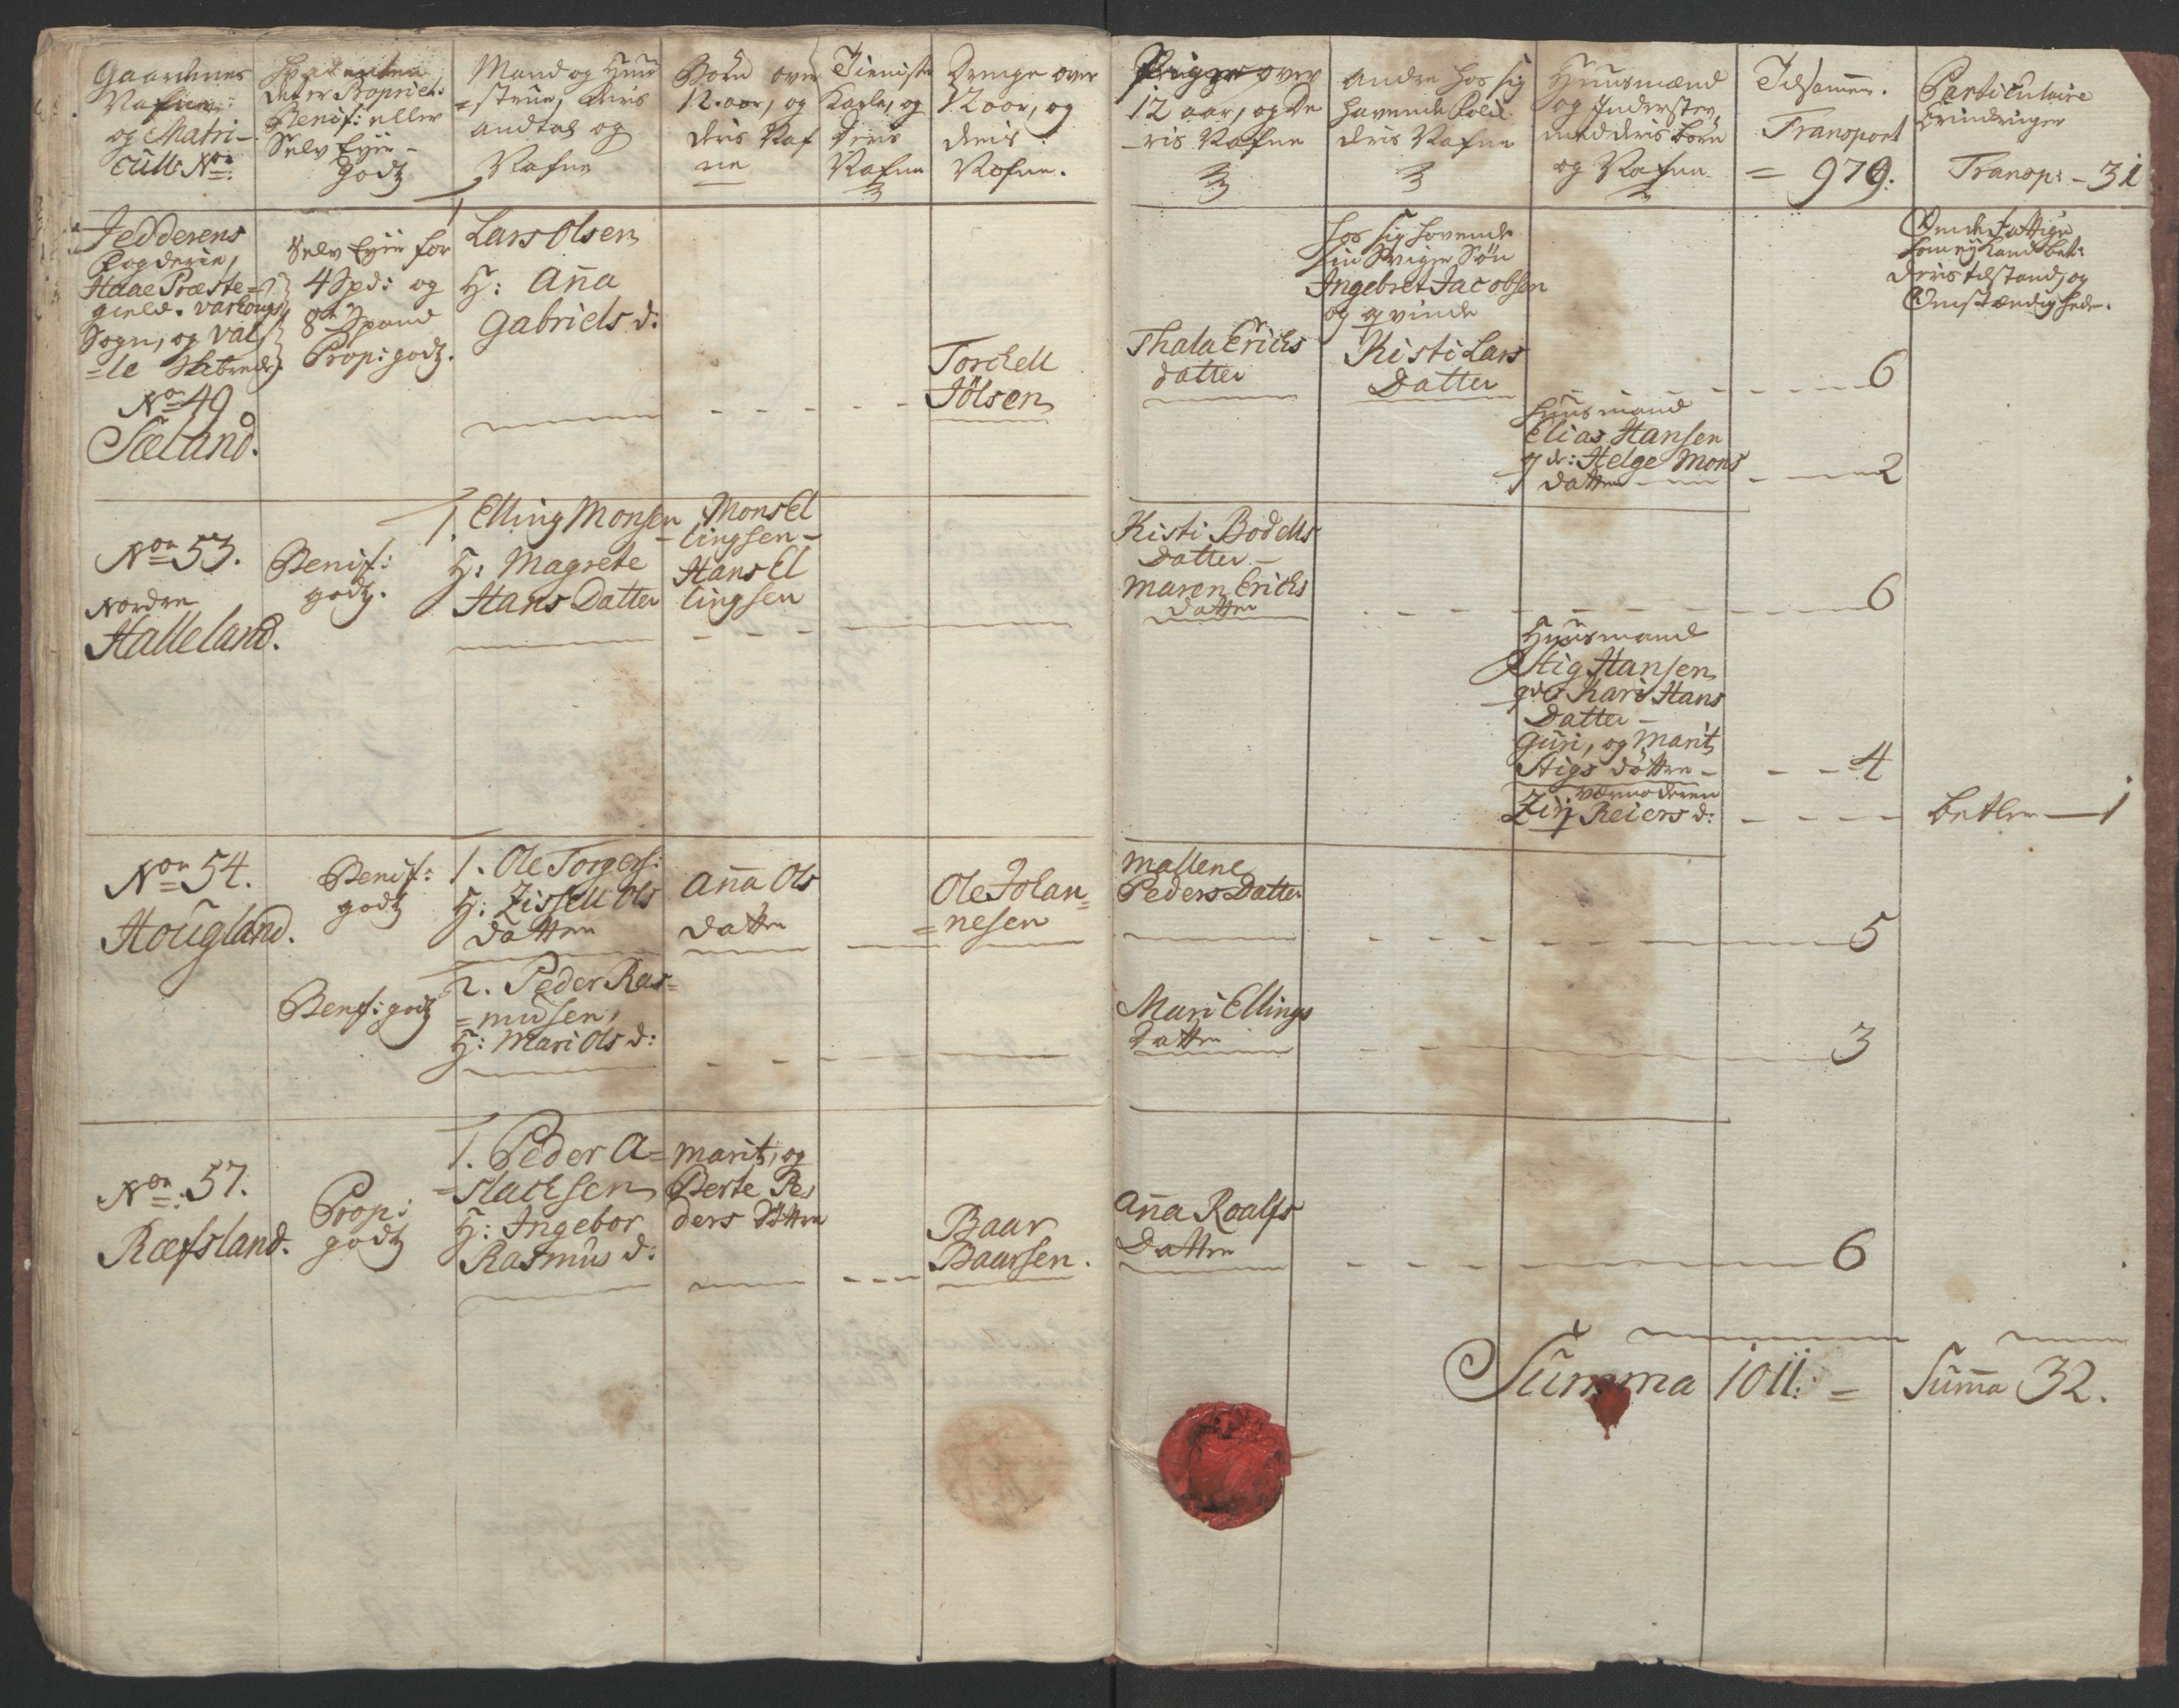 Gaardenes
Nafne
og Matri-
cüls No:
Hvad enten
det er Propriet:
Benif: eller
Selv Eyer-
godtz
Mand og Huu
=strue, deris
andtal og
Nafne
Børn over
12. aar, og
deris Naf
ne
Tieniste
Karle, og
deris
Nafne
Drenge over
12 aar, og
deris
Nafne.
Piiger over
12 aar, og De
-ris Nafne
Andre hos sig
havende Folk
deris Nafne
Huusmænd
og Inderster,
med deris børn
og Nafne
Tilsamen.
Transport
= 979.
Particulaire
Erindringer
Transp: - 31
Jedderens
Fogderie,
Haae Præste=
gield. Varhougs
Sogn, og Val
=le Skibrede
No 49
Sæland.
Selv Eyer for
4 Spd: og
8te Spand
Prop: godtz.
1 Lars Olsen
H: Anna
Gabriels d:
Torckell
Jölsen
Thala Erichs
datter
Hos sig havende
sin Sviger Søn
Ingebret Jacobsen
og qvinde
Kisti Lars
Datter
6
Huusmand
Elias Hansen
qd: Helge Mons
datter
2
Om de Fattige
deris tilstand, og
Omstændigheder.
No 53.
Nordre
Halleland.
Benif:
godtz.
1. Elling Monsen
H: Magrete
Hans Datter
Mons El
lingsen -
Hans El
lingsen
Kisti Bodells
Datter -
Maren Erichs
datter
6
Huusmand
Stig Hansen
qd: Kari Hans
Datter -
Guri, og Marit
Stigs døttre -
4
Værmoderen
Zirj Reiers d:
betler - 1
No 54.
Hougland.
Benif:
godtz
1. Ole Torgers:
H: Zissell Ols
datter
Anna Ols
datter
Ole Johan=
=nesen
Mallene
Peders Datter
5
Benif: godtz
2. Peder Ras=
=musen,
H: Mari Ols d:
Mari Ellings
datter
3
No: 57.
Ræfsland.
Prop:
godtz
1. Peder A=
=slacksen
H: Ingebor
Rasmus d:
Marit, og
Berte Pe
ders Døttre
Baar
Baarsen.
Anna Roalfs
Datter
6
Summa 1011. =
Summa 32.